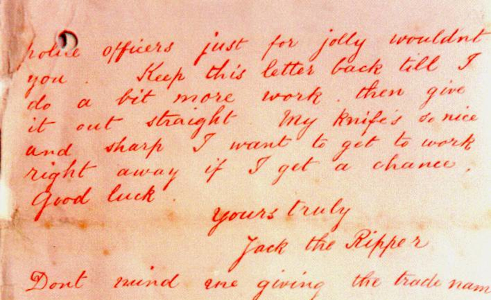 police officers just for jolly wouldnt
you. Keep this letter back till I
do a bit more work, then give
it out straight My knife's so nice
and sharp I want to get to work
right away if I get a chance,
Good luck.
yours truly
Jack the Ripper
Dont mind me giving the trade nam